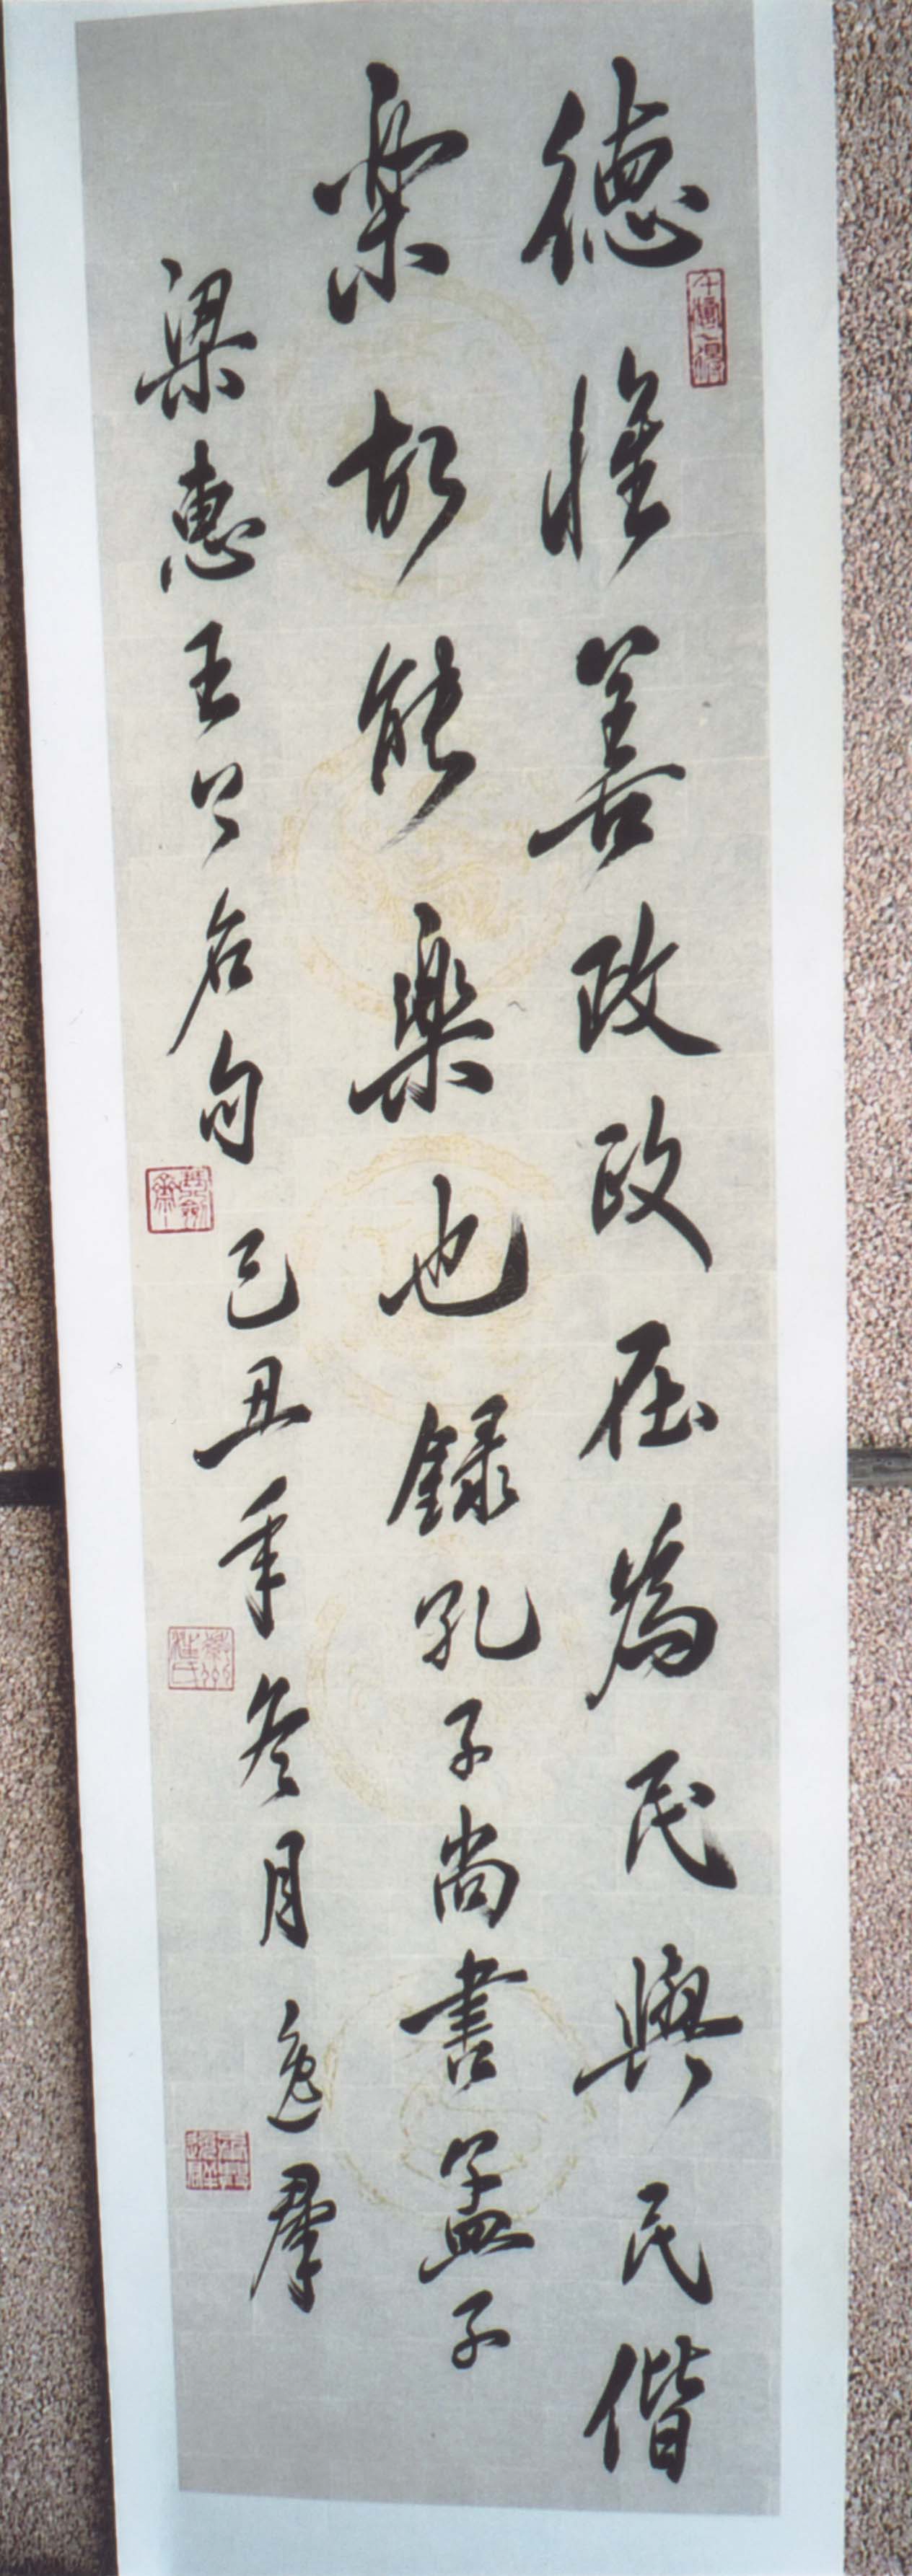 德惟善政政在為民與民偕
楽故能楽也録孔子尚書孟子
梁惠王上名句己丑年冬月逸羣